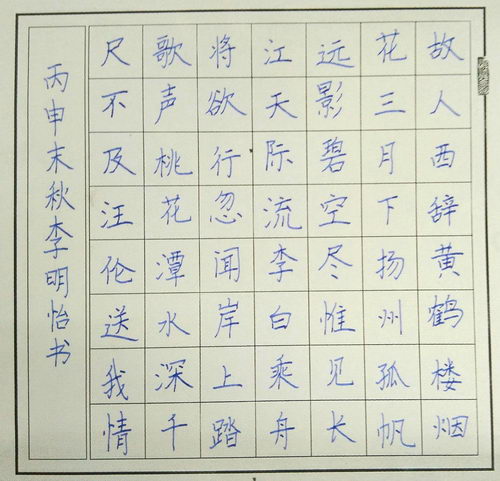 故人西辞黄鹤楼烟
花三月下扬州孤帆
远影碧空尽惟见长
江天际流李白乘舟
将欲行忽闻岸上踏
歌声桃花潭水深千
尺不及汪伦送我情
丙申末秋李明怡书